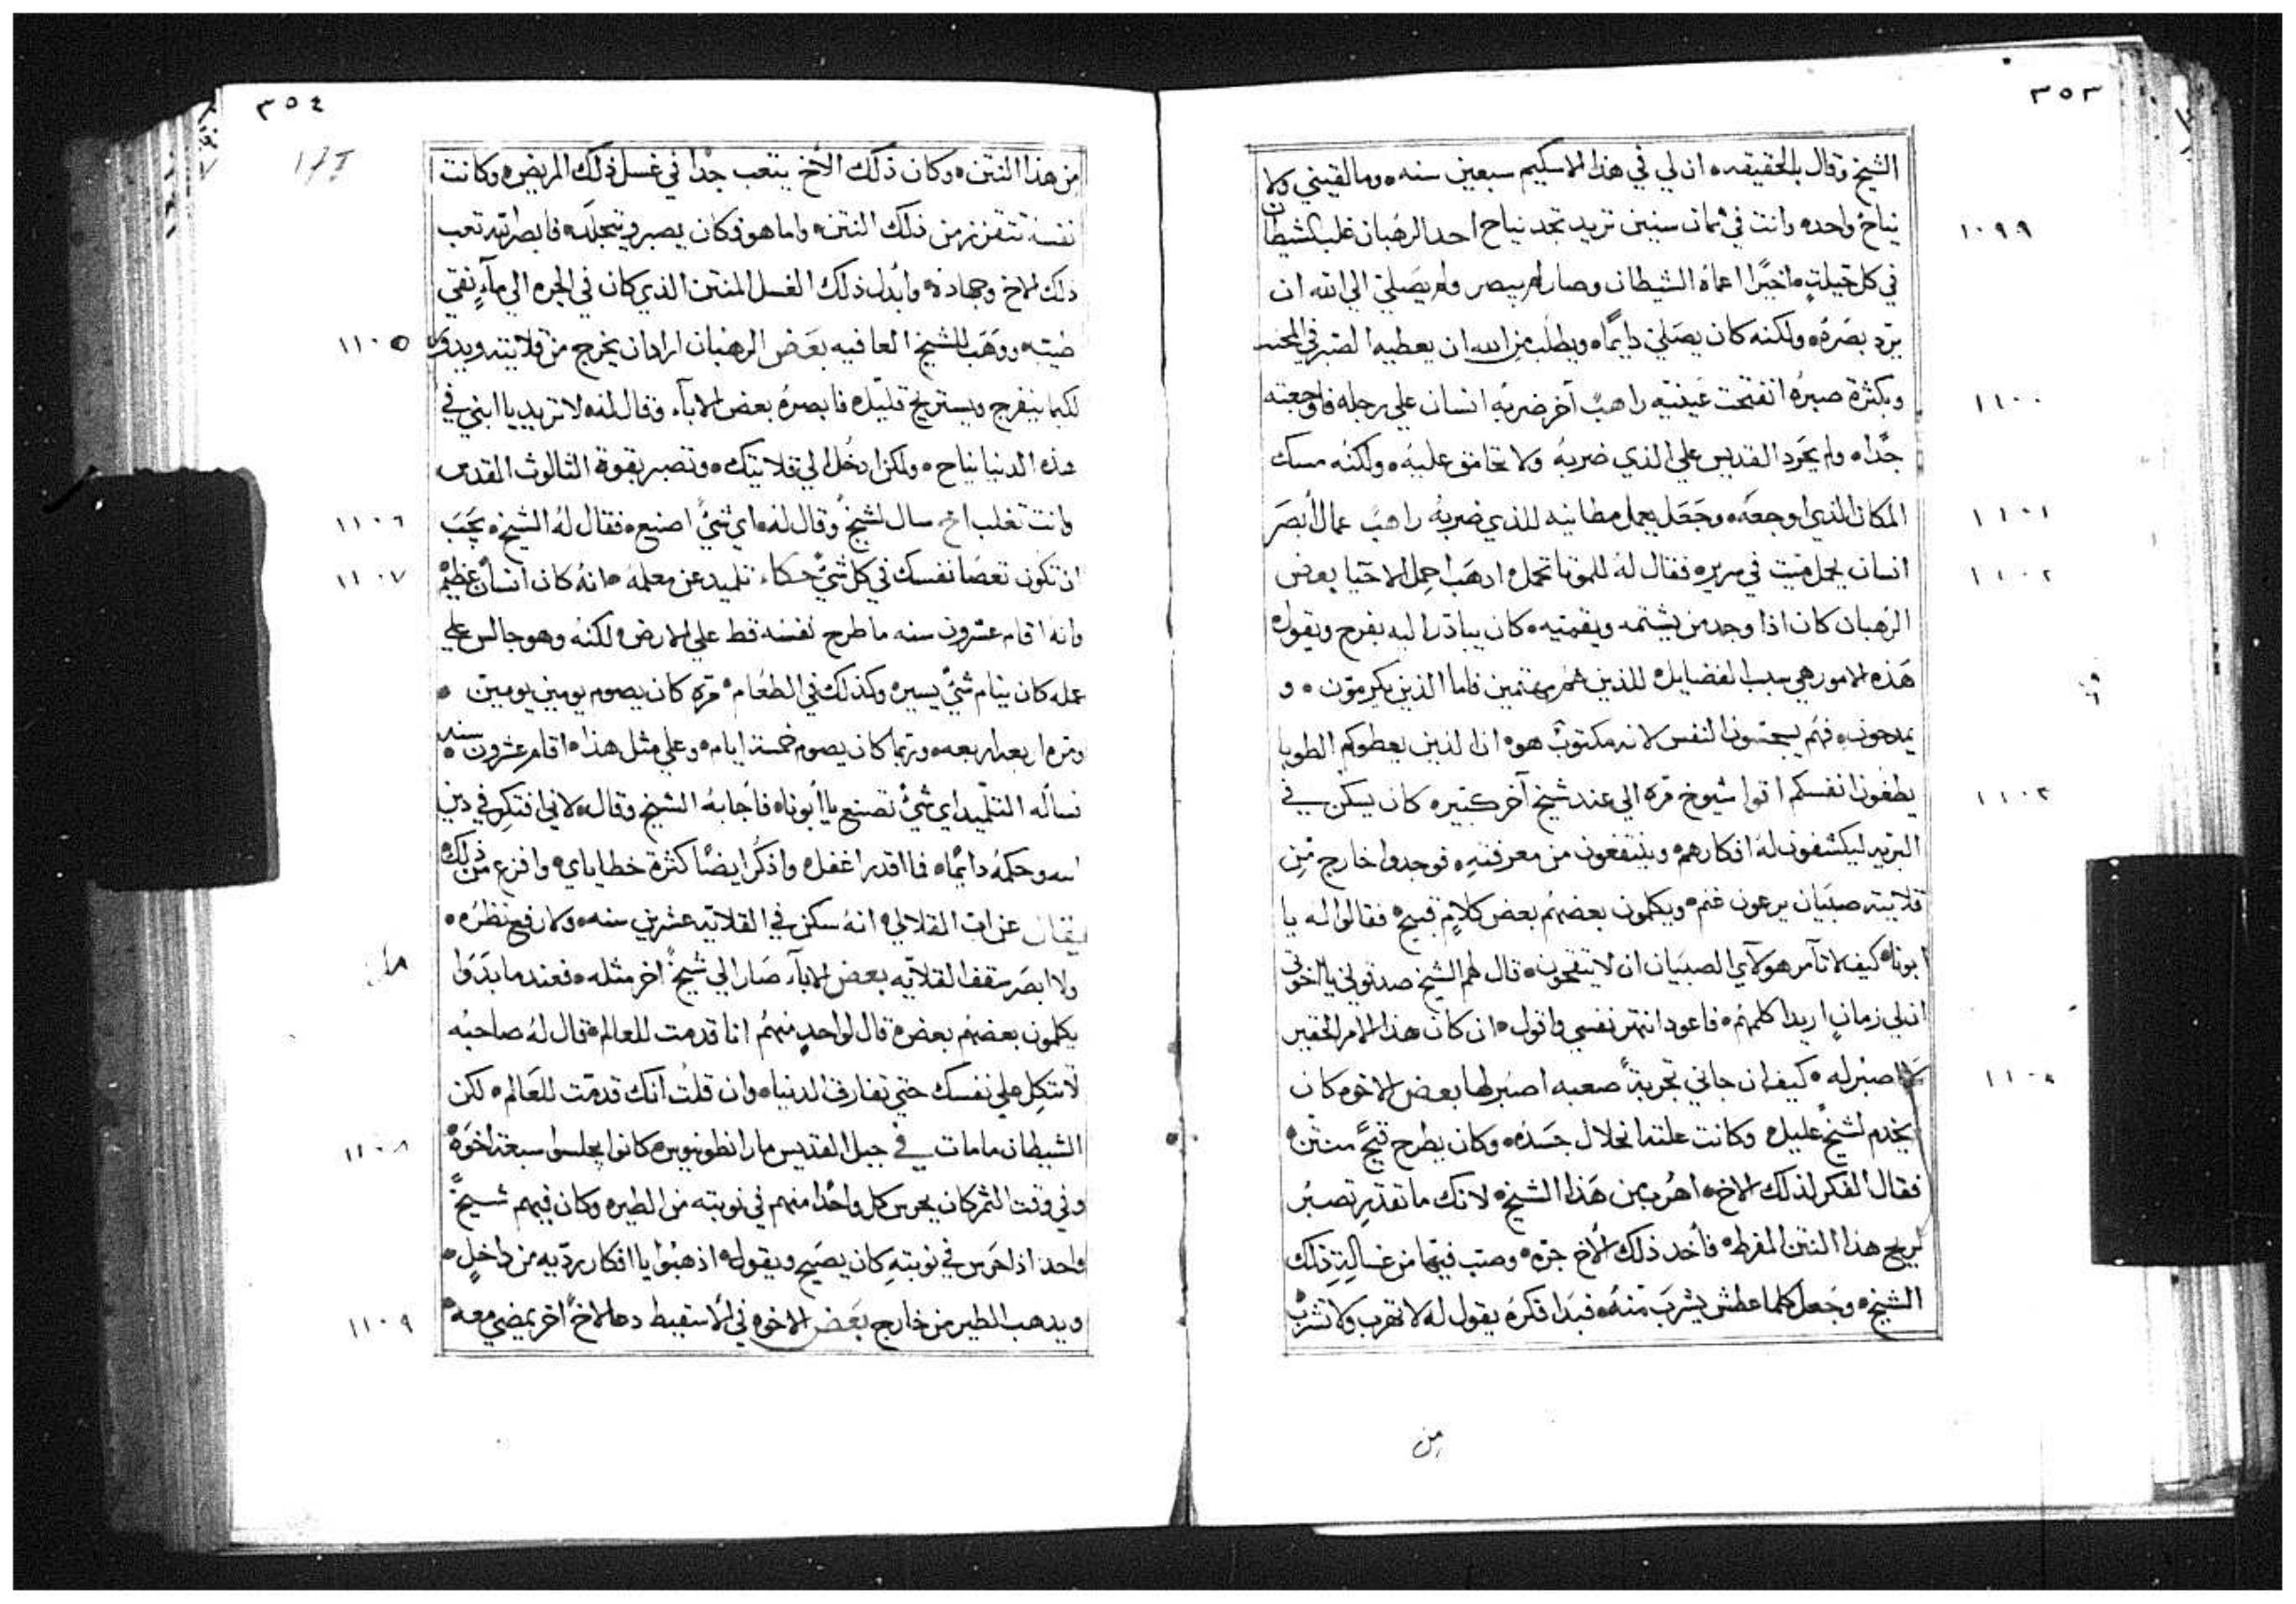 ٣٥٣
الشيخ وقال بالحقيقه ان لي في هذا الاسكيم سبعين سنه وما لقيني ولا
نياح واحده وانت في ثمان سنين تريد تجد نياح احد الرهبان غلب الشيطان ١٠٩٩
في كل حيلته اخيرًا اعماه الشيطان وصار لم يبصر ولم يصلي الي الله ان
يرد بصره ولكنه كان يصلي دايمًا ويطلب من الله ان يعطيه الصبر في المحنه
وبكثرة صبره انفتحت عينيه راهب آخر ضربه انسان علي رجله فاوجعته ١١٠٠
جدًا ولم يحرد القديس علي الذي ضربه ولا تحامق عليه ولكنه مسك
المكان الذي اوجعه وجعل يعمل مطانيه للذي ضربه راهب عمال ابصر ١١٠١
انسان يحمل ميت في سريره فقال له للموتا تحمل اذهب احمل الاحيا بعض ١١٠٢
الرهبان كان اذا وجد من يشتمه ويقمتيه كان يبادر اليه بفرح ويقول
هذه الامور هي سبب الفضايل للذين هم مهتمين فاما الذين يكرمون و
يمدحون فهم يسجسون النفس لانه مكتوب هو ان الذين يعطوكم الطوبا
يطغون انفسكم اتوا شيوخ مره الي عند شيخ آخر كبير كان يسكن في ١١٠٣
البريه ليكشفون له افكارهم وينتفعون من معرفته فوجدوا خارج من
قلايته صبيان يرعون غنم ويكلمون بعضهم بعض كلام قبيح فقالوا له يا
ابونا كيف لا تامر هولآي الصبيان ان لا يتقحون قال لهم الشيخ صدقوني يا اخوتي
ان لي زمان اريد اكلمهم فاعود انتهر نفسي واقول ان كان هذا الامر الحقير
لا اصبر له كيف ان جاني تجربة صعبه اصبر لها بعض الاخوه كان ١١٠٤
يخدم لشيخ عليل وكانت علته انحلال جسده وكان يطرح قيح منتن
فقال الفكر لذلك الاخ اهرب من هذا الشيخ لانك ما تقدر تصبر
لريح هذا النتن المفرط فأخد ذلك الأخ جره وصب فيها من غسالة ذلك
الشيخ وجعل كلما عطش يشرب منه فبدا فكره يقول له لا تهرب ولا تشرب
من
٣٥٤
من هذا النتن وكان ذلك الأخ يتعب جدًا في غسل ذلك المريض وكانت
نفسه تتقزز من ذلك النتن واما هو فكان يصبر ويتجلد فابصر الله تعب
ذلك الاخ وجهاده وابدل ذلك الغسل المنتن الذي كان في الجره الي مآء نقي
طيب ووهب للشيخ العافيه بعض الرهبان اراد ان يخرج من قلايته ويدور ١١٠٥
لكيما ينفرج ويستريح قليل فابصره بعض الابآء وقال له لا تريد يا ابني في
هذه الدنيا نياح ولكن ادخل الي قلايتك وتصبر بقوة الثالوث المقدس
وانت تغلب اخ سال لشيخ وقال له اي شيً اصنع فقال له الشيخ يجب ١١٠٦
ان تكون تعصا نفسك في كل شي حكاء تلميد عن معلمه انه كان انسان عظيم ١١٠٧
وانه اقام عشرون سنه ما طرح نفسه قط علي الارض لكنه وهو جالس علي
عمله كان ينام شي يسير وكذلك في الطعام مره كان يصوم يومين يومين
ومره اربعه اربعه وربما كان يصوم خمسة ايام وعلي مثل هذا اقام عشرون سنه
نساله التلميد اي شي تصنع يا ابوناه فأجابه الشيخ وقال لاني افتكر في دين
الله وحكمه دايمًا فما اقدر اغفل واذكر ايضًا كثرة خطاياي وافزع من ذلك
يقال عن اب القلالي انه سكن في القلايه عشرين سنه ولا رفع نظره
ولا ابصر سقف القلايه بعض الابآء صار الي شيخ اخر مثله فعندما بدوا
يكلمون بعضهم بعض قال لواحد منهم انا قد مت للعالم قال له صاحبه
لا تتكل علي نفسك حتي تفارق الدنيا وان قلت انك قد مت للعالم لكن
الشيطان ما مات في جبل القديس مار انطونيوس كانوا يجلسوا سبعة اخوه ١١٠٨
وفي وقت الثمر كان يحرس كل واحدًا منهم في نوبته من الطير وكان فيهم شيخ
واحد اذا حرس في نوبته كان يصيح ويقول اذهبوا يا افكار رديه من داخل
ويدهب الطير من خارج بعض الاخوه في الاسقيط دعا لاخ اخر يمضي معه ١١٠٩